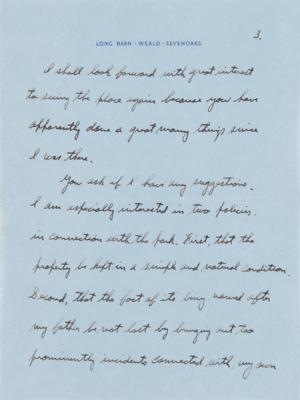 3.
LONG BARN · WEALD · SEVENOAKS
I shall look forward with great interest
to seeing the place again because you have
apparently done a great many things since
I was there.
You ask if I have any suggestions.
I am especially interested in two policies
in connection with the park. First, that the
property be kept in a simple and natural condition.
Second, that the fact of its being named after
my father be not lost by bringing out too
prominently incidents connected with my own